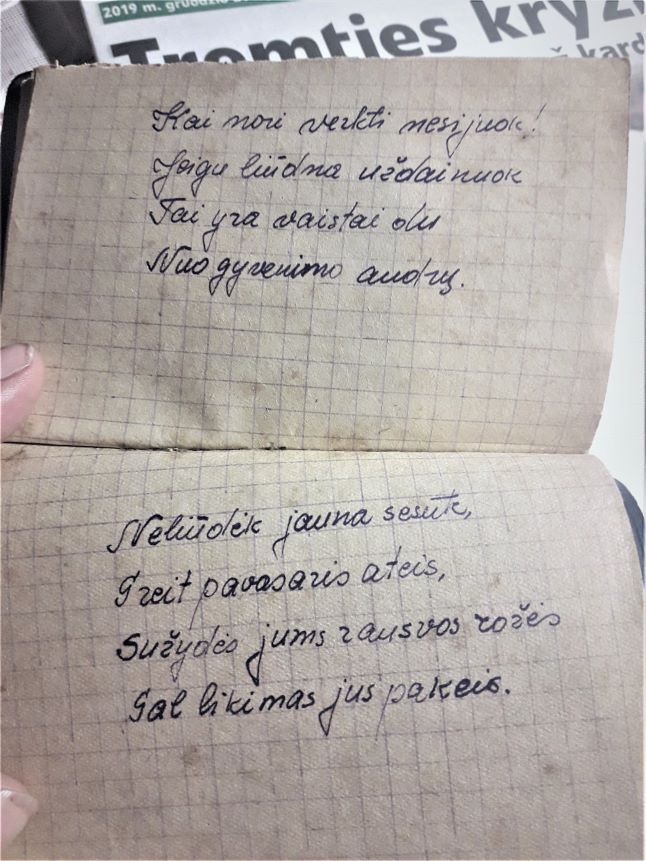 2019 m. gruodžio
Tremties kryži
kard
Kai nori verkti nesijuok!
Jeigu liūdna uždainuok
Tai yra vaistai du
Nuo gyvenimo audrų.
Neliūdėk jauna sesut,
Greit pavasaris ateis,
Sužydės jums rausvos rožės
Gal likimas jus pakeis.